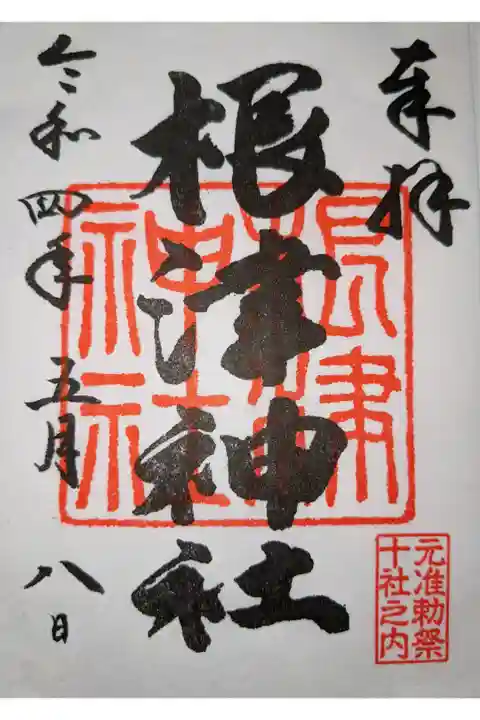 奉拝
根津神社
令和四年五月八日
根津
神社
元准勅祭
十社之内